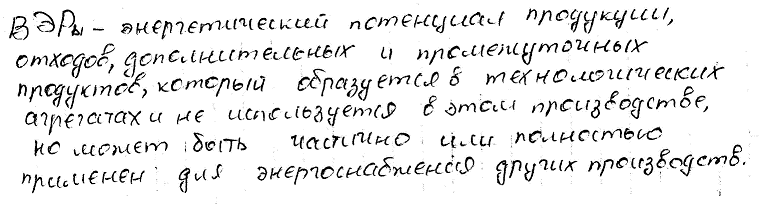 ВЭРы – энергетический потенциал продукции,
отходов, дополнительных и промежуточных
продуктов, который образуется в технологических
агрегатах и не используется в этом производстве,
но может быть частично или полностью
применен для энергоснабжения других производств.